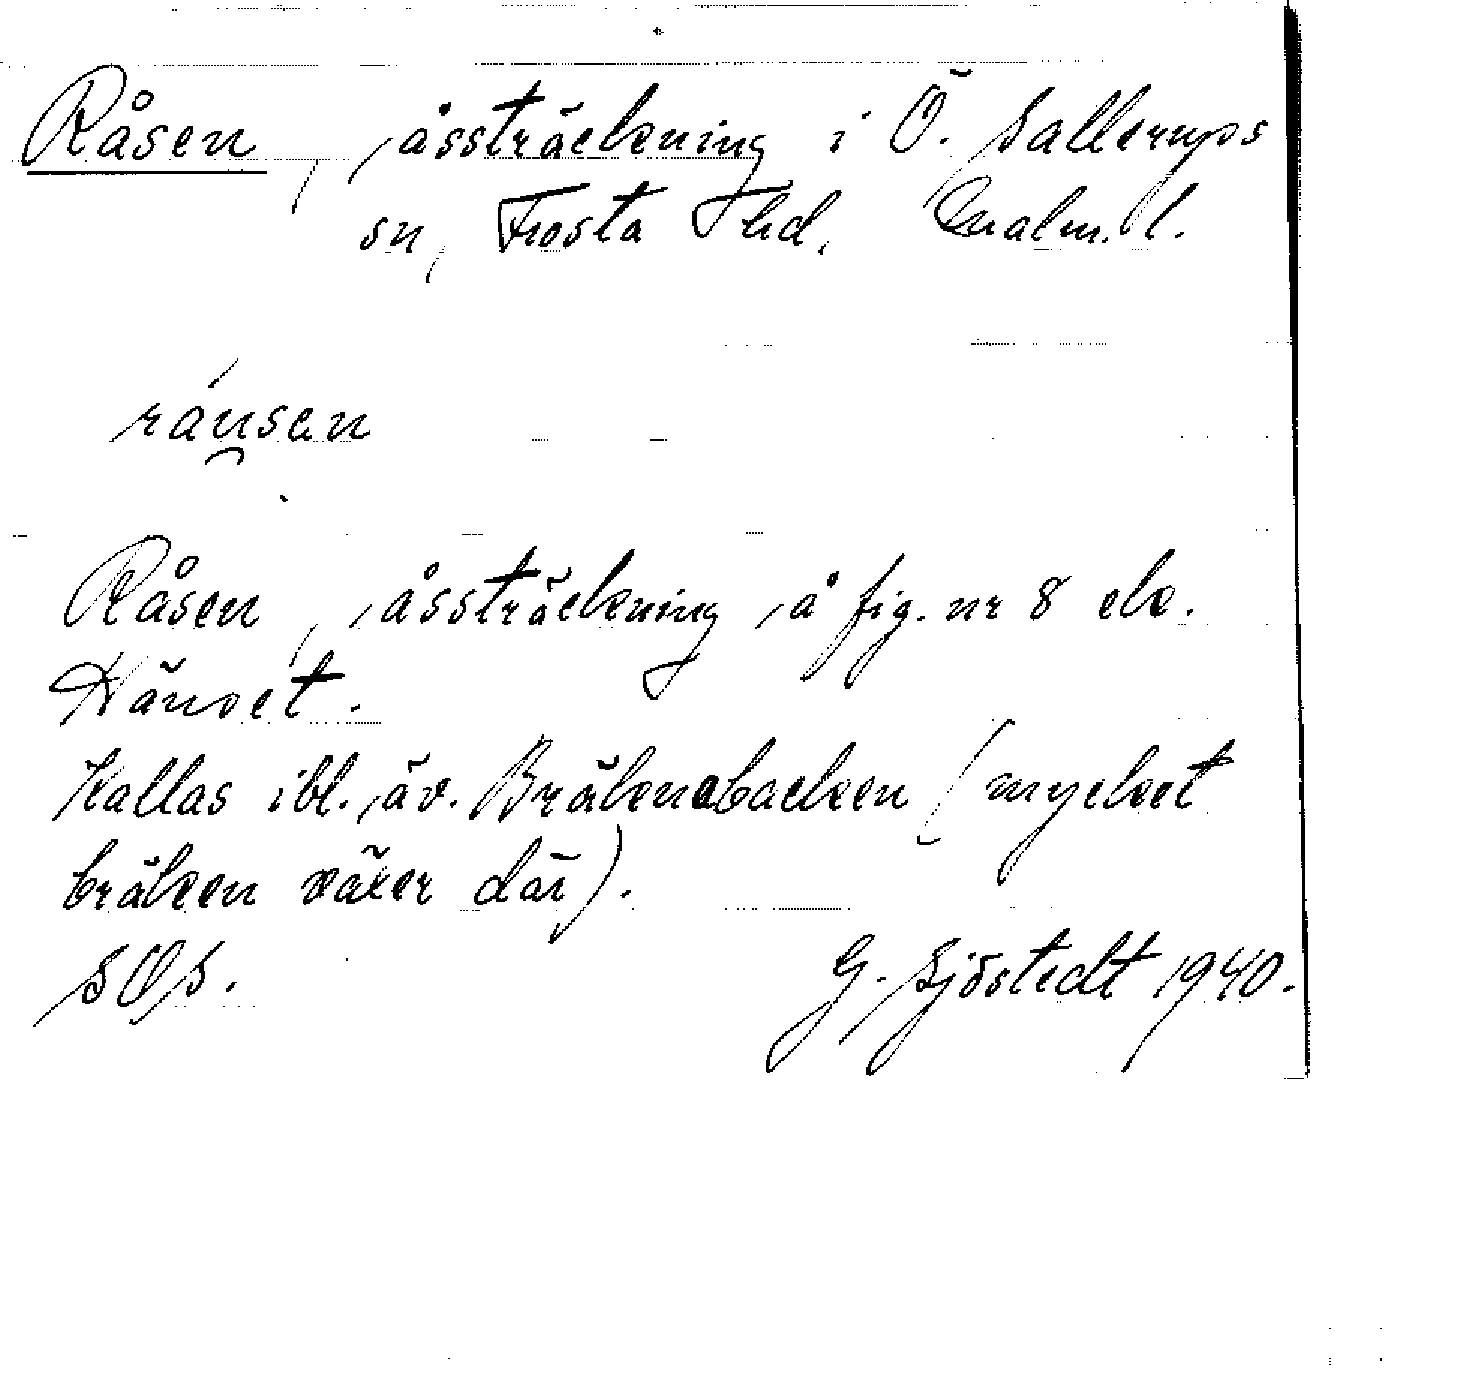 Råsen, åssträckning i Ö. Sallerups
sn, Frosta hd, Malm. l.
råu̯sen
Råsen, åssträckning å fig. nr 8 ek.
Hänset.
Kallas ibl. äv. Bräknebacken (mycket
bräken växer där).
SOS. G. Sjöstedt 1940.